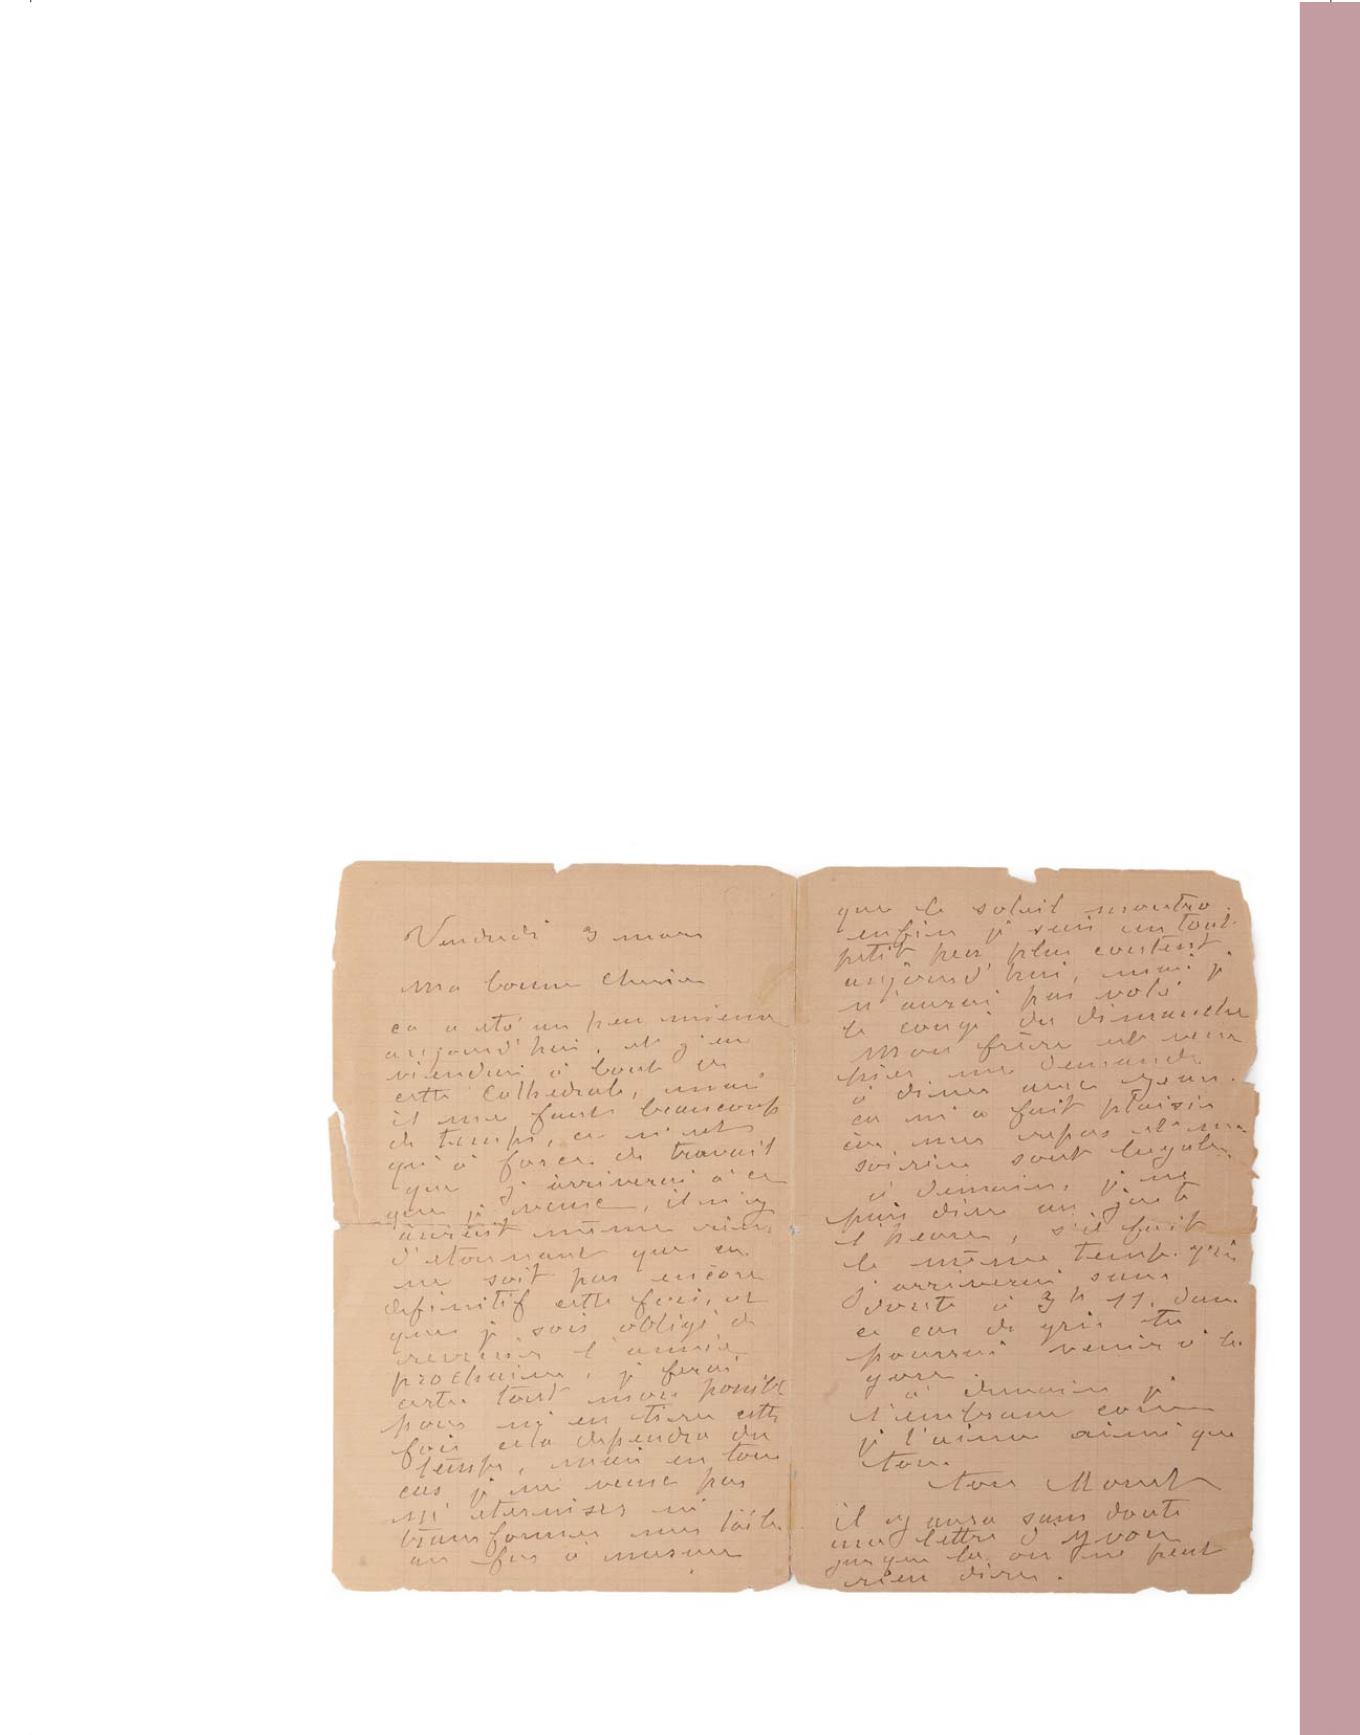 Vendredi 3 mars
Ma bonne chérie
ça a été un peu mieux
aujourd'hui, et j'en
viendrai à bout de
cette Cathédrale, mais
il me faut beaucoup
de temps, ce n'est
qu'à force de travail
que j'arriverai à ce
que je veux, il n'y
aurait même rien
d'étonnant que ce
ne soit pas encore
définitif cette fois, et
que je sois obligé de
revenir l'année
prochaine, je ferai
certes tout mon possible
pour m'en tirer cette
fois cela dépendra du
temps, mais en tous
cas je ne veux pas
m'éterniser ni
transformer mes toiles
au fur à mesure
que le soleil montre
enfin je suis un tout
petit peu plus content
aujourd'hui, mais je
n'aurai pas volé
le congé du dimanche
Mon frère est venu
hier me demander
à dîner avec
ça m'a fait plaisir
car mes repas et ma
soirée sont
à demain, je ne
puis dire au juste
l'heure, s'il fait
le même temps gris
j'arriverai sans
doute à 3h 11. dans
ce cas de gris tu
pourrais venir à la
gare.
à demain je
t'embrasse comme
je t'aime ainsi que
tous.
ton Monet
il y aura sans doute
une lettre d'
jusque là on ne peut
rien dire.